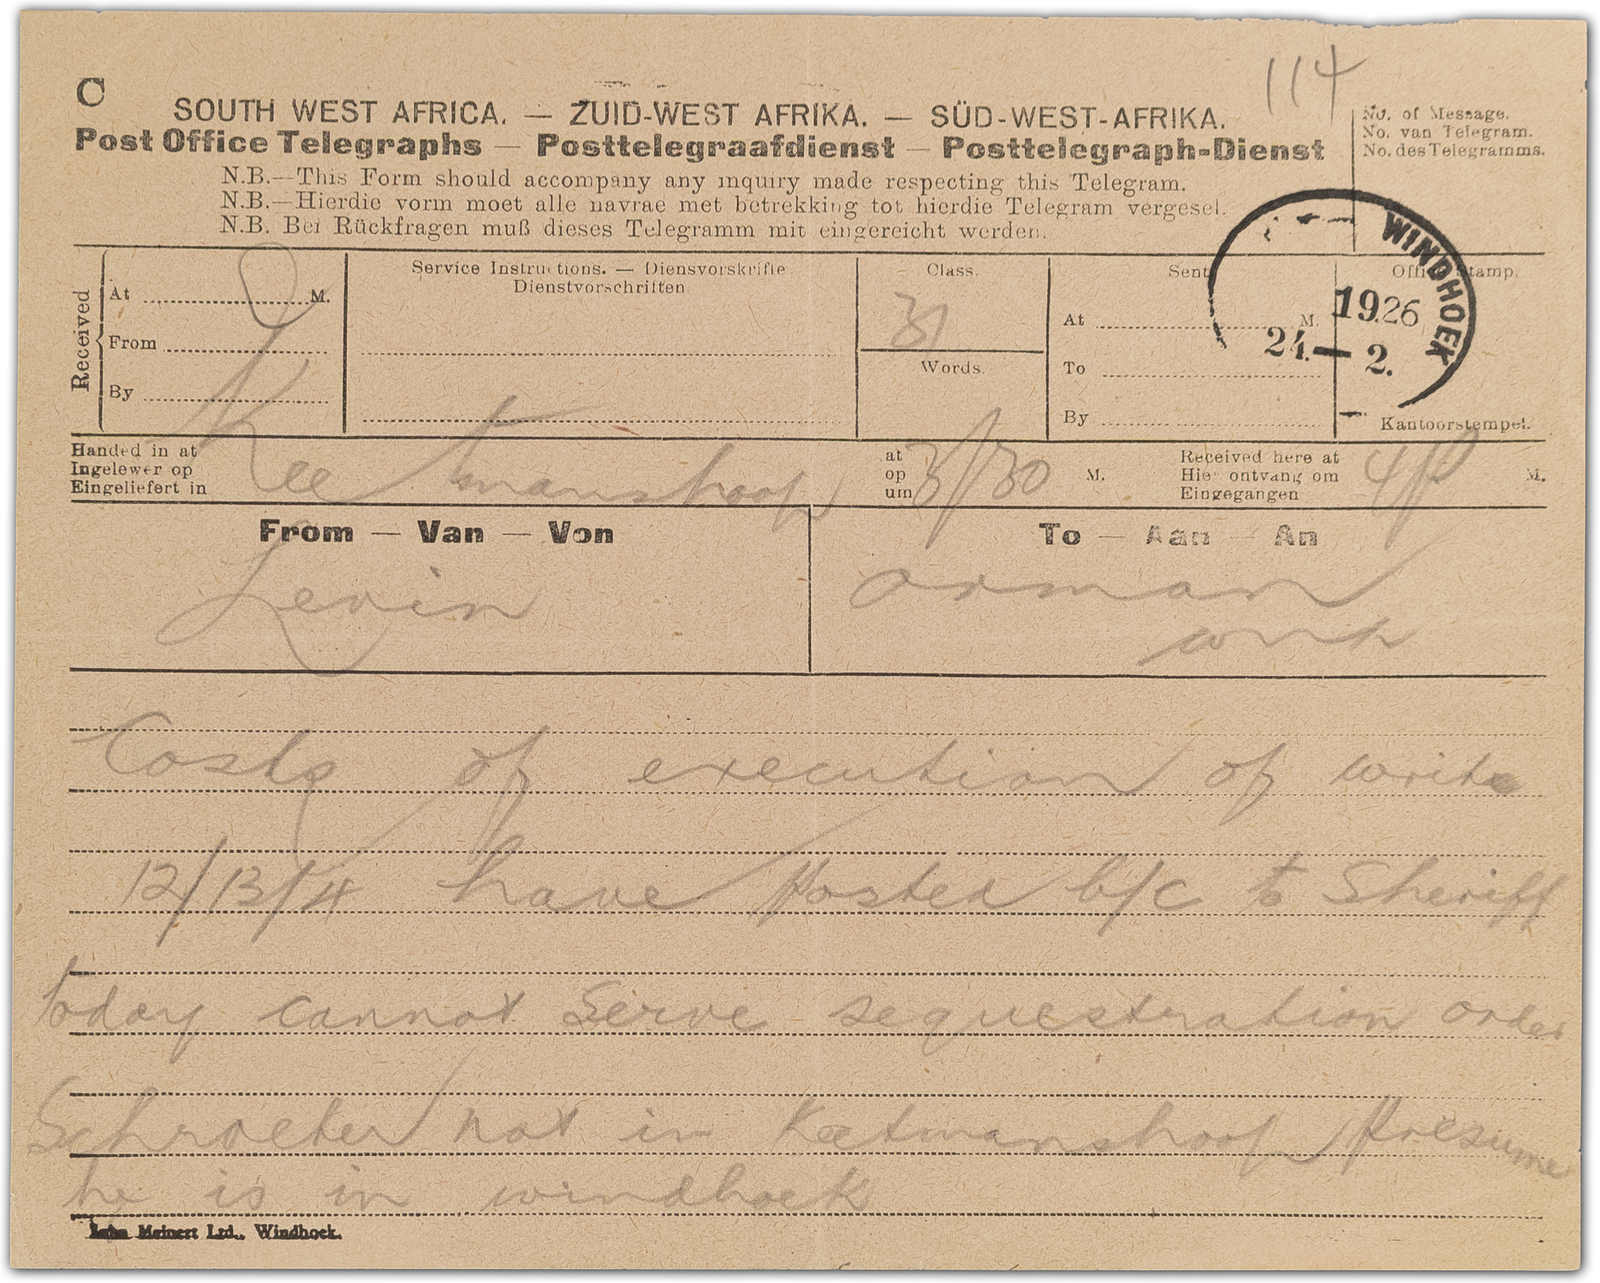 114
C
SOUTH WEST AFRICA. — ZUID-WEST AFRIKA. — SÜD-WEST-AFRIKA.
Post Office Telegraphs — Posttelegraafdienst — Posttelegraph-Dienst
No. of Message.
No. van Telegram.
No. des Telegramms.
N.B.—This Form should accompany any inquiry made respecting this Telegram.
N.B.—Hierdie vorm moet alle navrae met betrekking tot hierdie Telegram vergesel.
N.B. Bei Rückfragen muß dieses Telegramm mit eingereicht werden.
Received
At M.
From
By
Service Instructions. — Diensvorskrifte
Dienstvorschriften
Class.
31
Words.
Sent
At M.
To
By
Office Stamp.
Kantoorstempel.
WINDHOEK
1926
24.—2.
Handed in at
Ingelewer op
Eingeliefert in
Keetmanshoop
at
op
um
3/30 M.
Received here at
Hier ontvang om
Eingegangen
4p M.
From — Van — Von
Levin
To — Aan — An
orman
whk
Costs of execution of writs
12/13/14 have posted b/c to Sheriff
today cannot serve sequestration order
Schroeter not in Keetmanshoop presume
he is in windhoek
John Meinert Ltd., Windhoek.